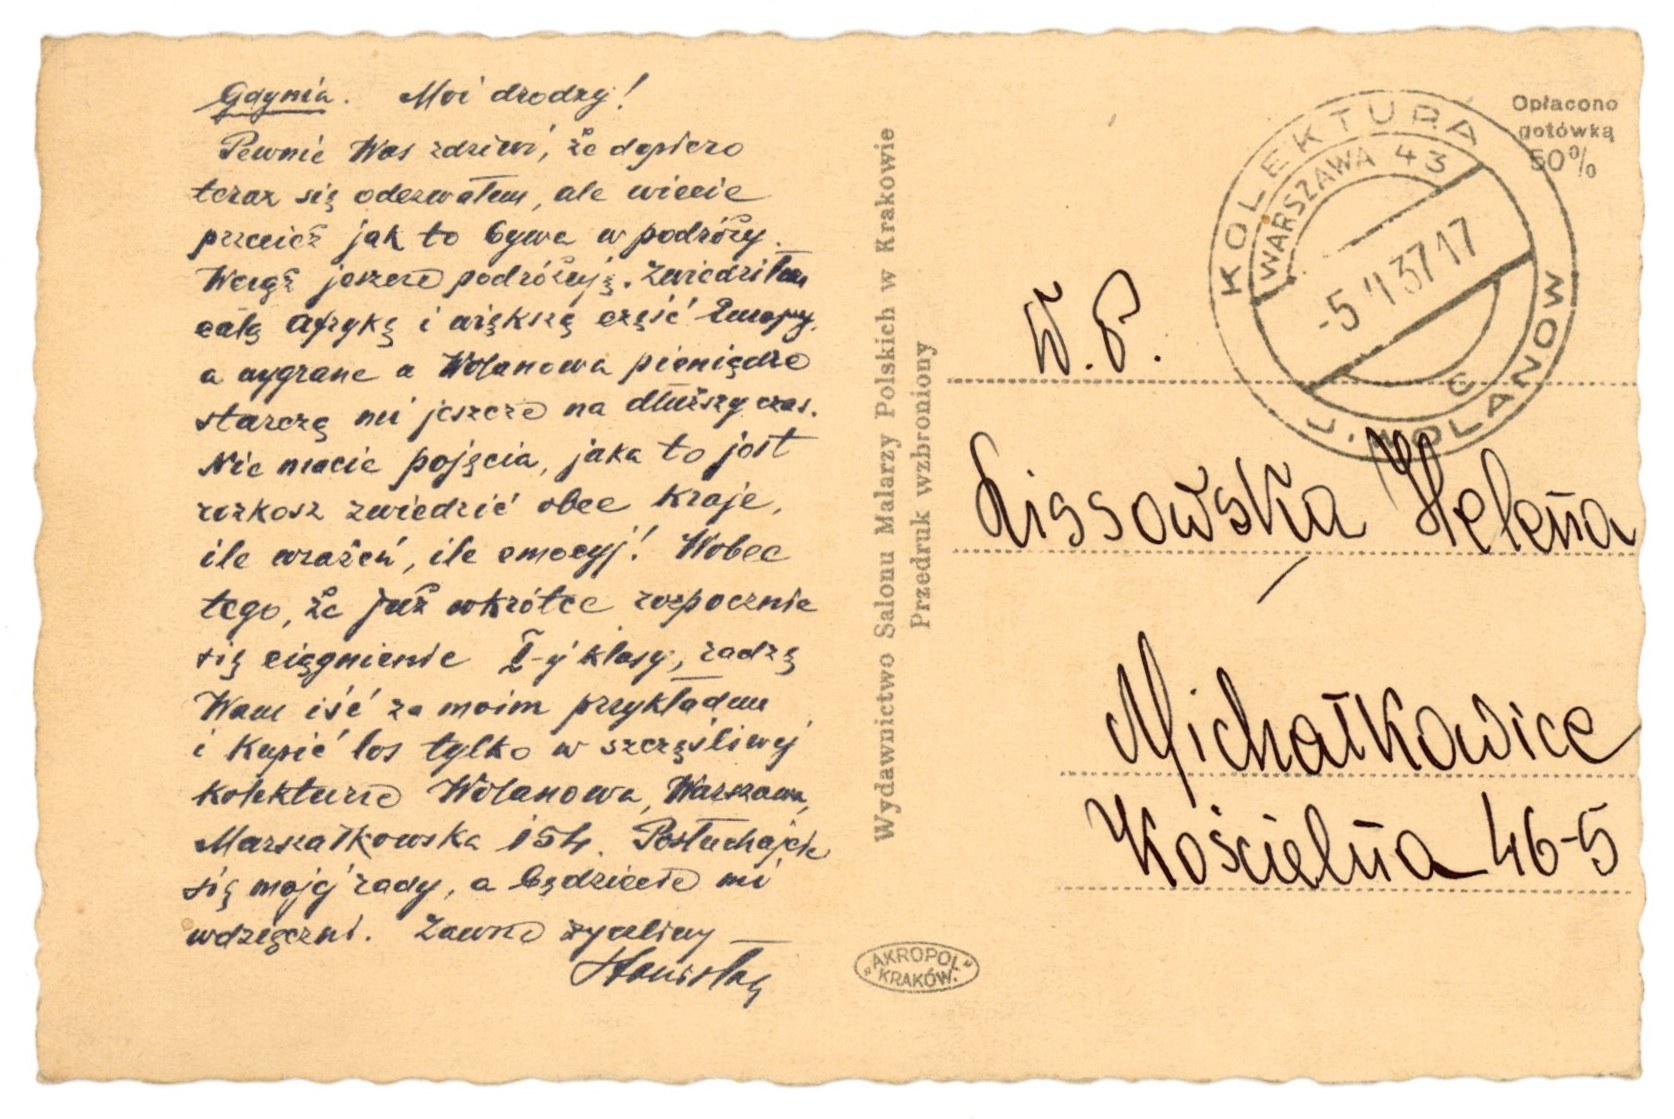 Gdynia. Moi drodzy!
Pewnie Was zdziwi, że dopiero
teraz się odezwałem, ale wiecie
przecież jak to bywa w podróży.
Wciąż jeszcze podróżuję. Zwiedziłem
całą Afrykę i większą część Europy,
a wygrane u Wolanowa pieniądze
starczą mi jeszcze na dłuższy czas.
Nie macie pojęcia, jaka to jest
rozkosz zwiedzić obce kraje,
ile wrażeń, ile emocyj! Wobec
tego, że już wkrótce rozpocznie
się ciągnienie I-ej klasy, radzę
Wam iść za moim przykładem
i kupić los tylko w szczęśliwej
kolekturze Wolanowa, Warszawa,
Marszałkowska 154. Posłuchajcie
się mojej rady, a będziecie mi
wdzięczni. Zawsze życzliwy
Stanisław
Wydawnictwo Salonu Malarzy Polskich w Krakowie
Przedruk wzbroniony
"AKROPOL"
KRAKÓW.
Opłacono
gotówką
50%
KOLEKTURA
WARSZAWA 43
-5 37 17
c
J. WOLANOW
W.P.
Lissowska Helena
Michałkowice
Kościelna 46-5